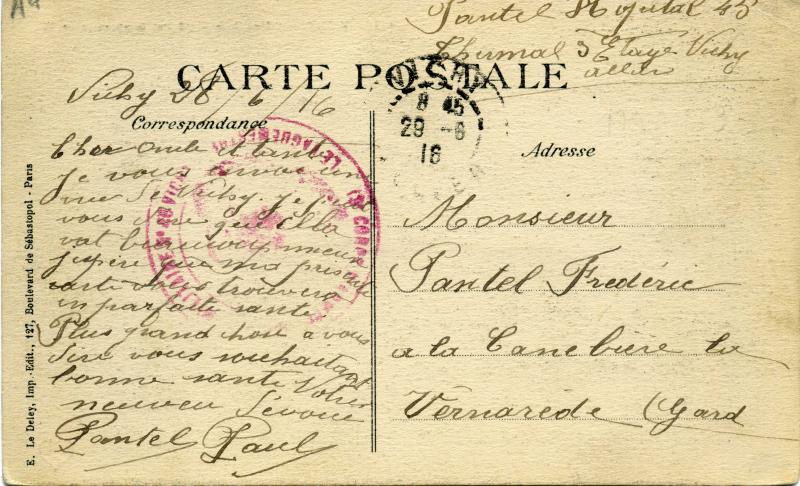 Pantel Hopital 45
Thermal 3 Etage Vichy
allier
CARTE POSTALE
Vichy 28/6/16
Correspondance
Cher oncle et tante
je vous envoie une
vue de Vichy. je
vous dire que
vat beaucoup mieux
j'espère que ma présente
carte vous trouvera
en parfaite santé
Plus grand chose a vous
dire vous souhaitant
bonne santé Votre
neuveu dévoué
Pantel Paul
8 45
29 -6
16
Adresse
Monsieur
Pantel Fréderic
a la Canebière la
Vernarède (Gard
E. Le Deley, Imp.-Edit., 127, Boulevard de Sébastopol - Paris